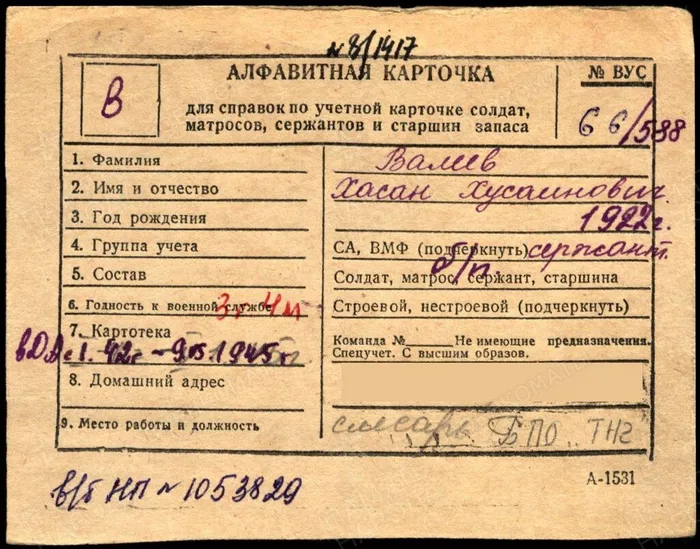 № 8/1417
В
АЛФАВИТНАЯ КАРТОЧКА
для справок по учетной карточке солдат,
матросов, сержантов и старшин запаса
№ ВУС
66/588
1. Фамилия
Валеев
2. Имя и отчество
Хасан Хусаинович
3. Год рождения
1922 г.
4. Группа учета
СА, ВМФ (подчеркнуть) сержант
5. Состав
б/п
Солдат, матрос, сержант, старшина
6. Годность к военной службе
3 г 4 м
Строевой, нестроевой (подчеркнуть)
7. Картотека
Команда № Не имеющие предназначения.
Спецучет. С высшим образов.
в ДА с 1. 42 г – 9.05.1945 г.
8. Домашний адрес
9. Место работы и должность
слесарь БПО ТНГ
в/б НП № 1053829
А-1531